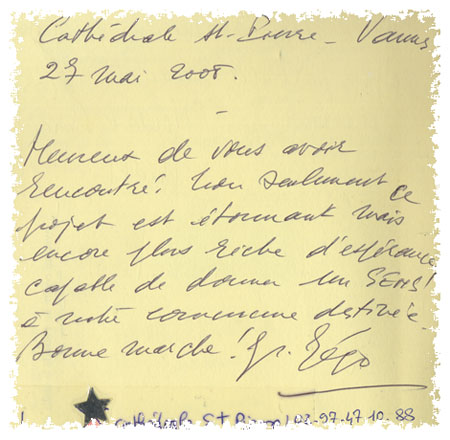 Cathédrale St-Pierre - Vannes
27 mai 2008.
-
Heureux de vous avoir
rencontré! Non seulement ce
projet est étonnant mais
encore plus riche d'espérance
capable de donner un SENS!
à notre commune destinée.
Bonne marche!
Cathédrale St Pierre 02.97.47.10.88